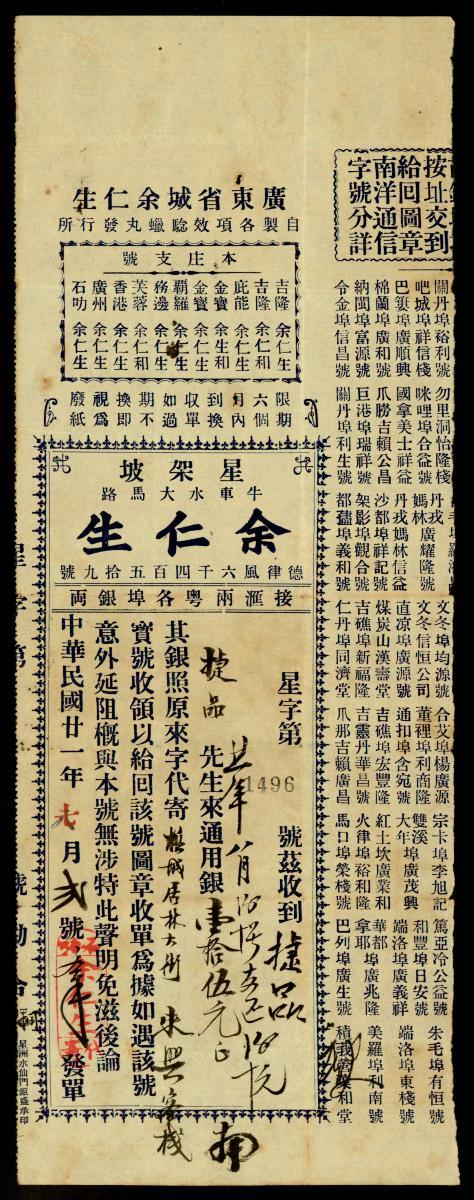 按址交到
給回圖章
南洋通信
字號分詳
關丹埠裕利號
吧城埠祥信棧
埠廣順興
棉蘭埠廣和號
納閩埠富源號
令金埠信昌號
勿里洞怡隆棧
咪哩埠合益號
國拿美士祥益
爪勝吉賴公昌
巨港埠瑞祥號
關丹埠利生號
丹戎媽林廣耀隆號
丹戎媽林信益
沙都埠祥記號
架影埠觀合號
埠義和號
文冬埠均源號
文冬信恒公司
直凉埠廣源號
煤炭山漢壽堂
吉礁埠新福隆
仁丹埠同濟堂
合艾埠楊廣源
董裡埠利商隆
通扣埠含宛號
吉礁埠宏豐隆
吉靈丹華昌號
爪那吉賴廣昌
宗卡埠李旭記
雙溪大年埠廣茂興
紅土坎廣業和
火律埠裕和隆
馬口埠榮棧號
篤亞冷公益號
和豐埠日安號
端洛埠廣義祥
華都埠廣兆隆
巴列埠廣生號
朱毛埠有恒號
端洛埠東棧號
美羅埠利南號
榮和堂
廣東省城余仁生
自製各項效驗蠟丸發行所
本庄支號
吉隆 余仁生
吉隆 余仁和
庇能 余仁生
金寶 余生和
金寶 余仁生
覇羅 余仁生
務邊 余仁生
芙蓉 余仁和
香港 余仁生
廣州 余仁生
石叻 余仁生
限期
六個
月內
到換
收單
如過
期不
換即
視爲
廢紙
星架坡
牛車水大馬路
余仁生
德律風六千四百五拾九號
接滙兩粤各埠銀両
星字第 1496 號茲收到 捷品
捷品 先生來通用銀 壹拾伍元正
其銀照原來字代寄 居林大街 東興客棧
寳號收領以給回該號圖章收單爲據如遇該號
意外延阻概與本號無涉特此聲明免滋後論
中華民國廿一年 月 弍 號 發單